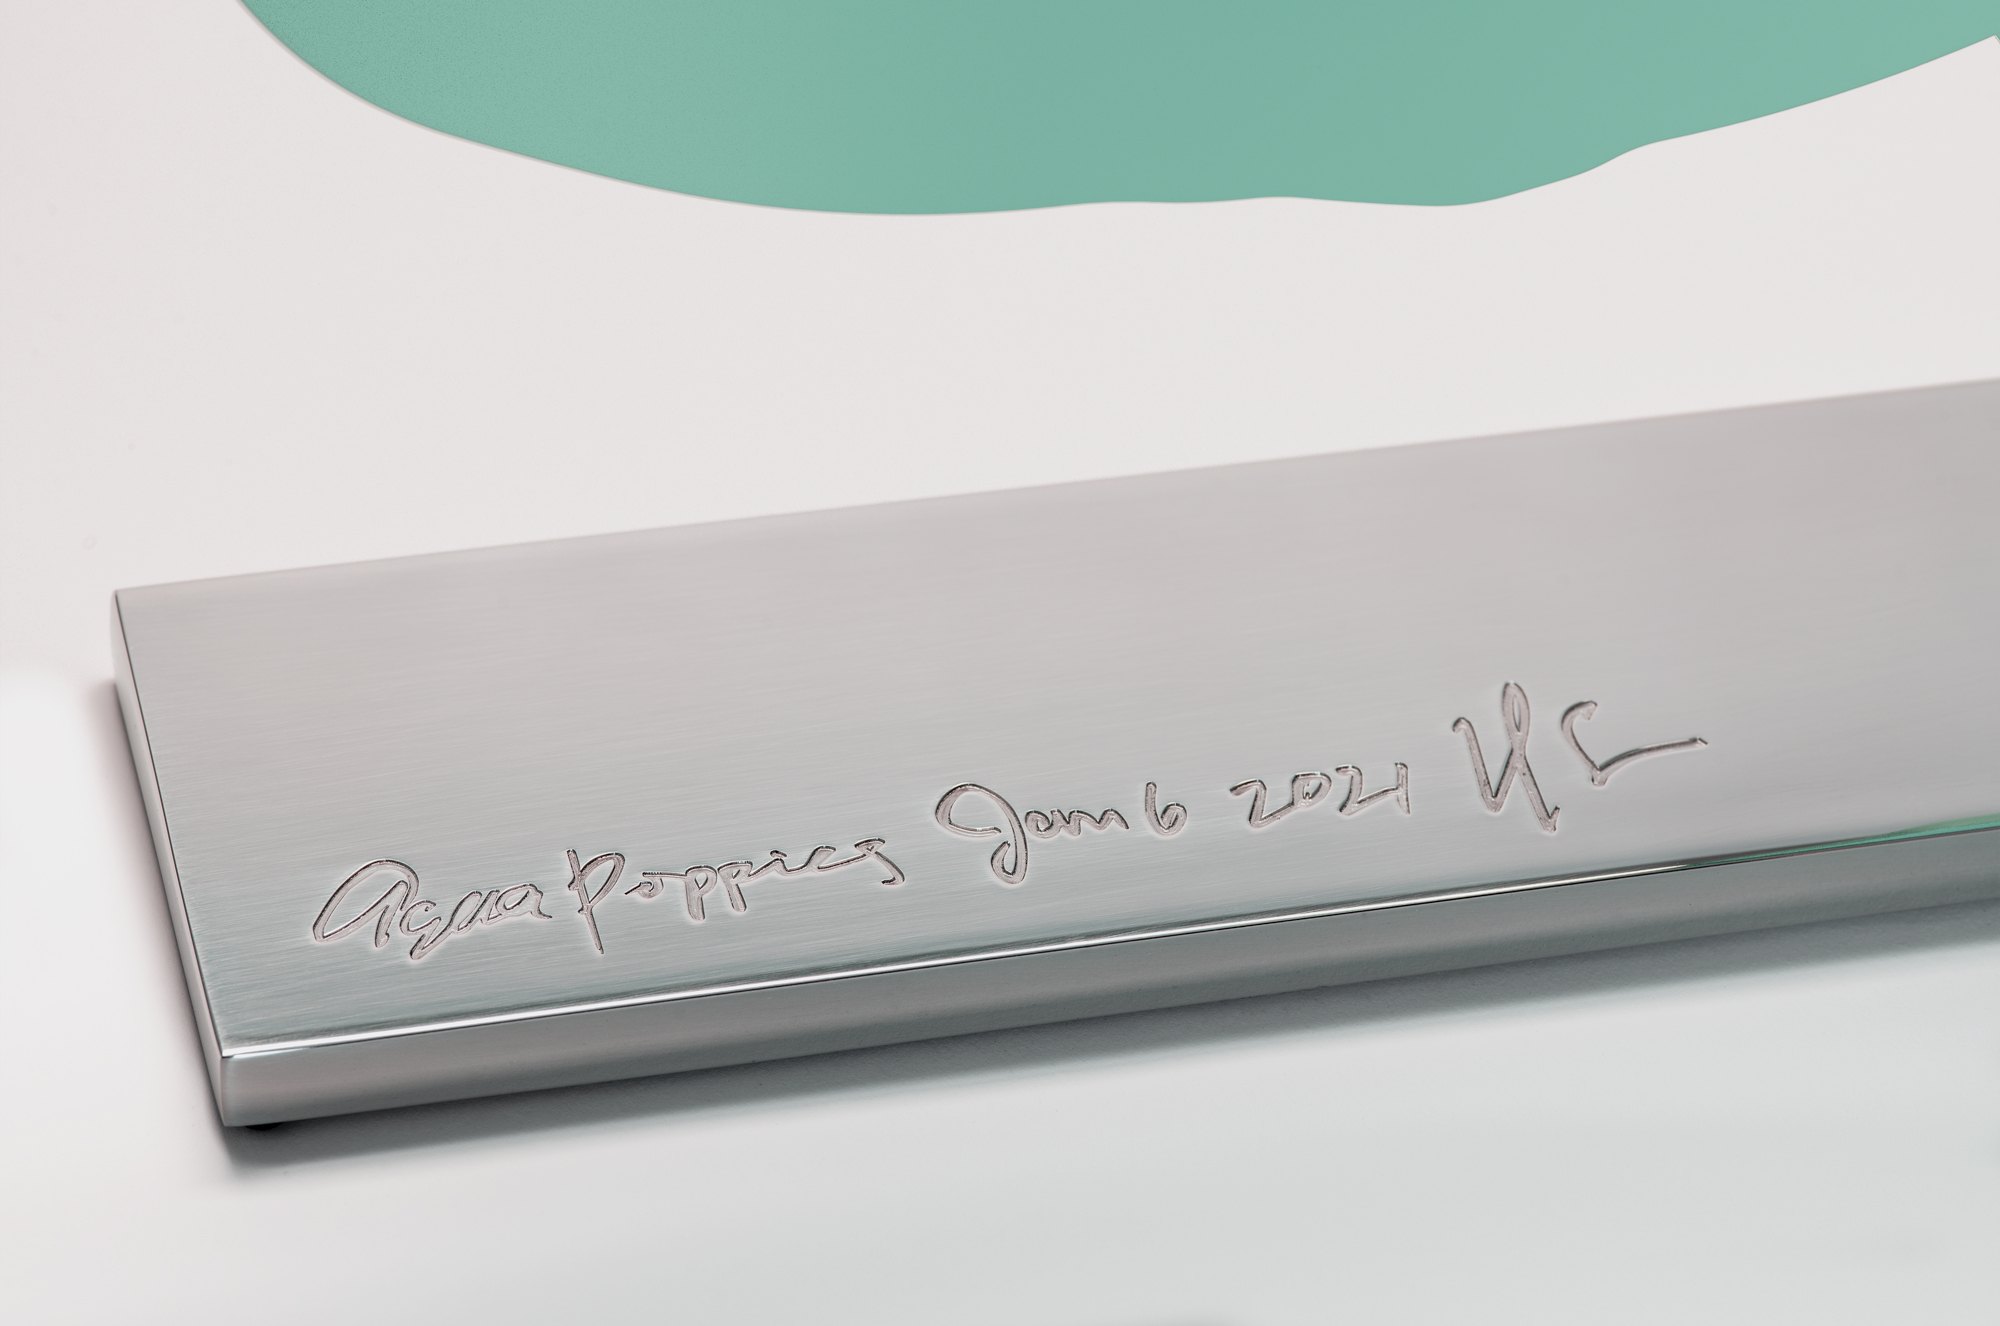 Aqua Poppies Jan 6 2021 DS